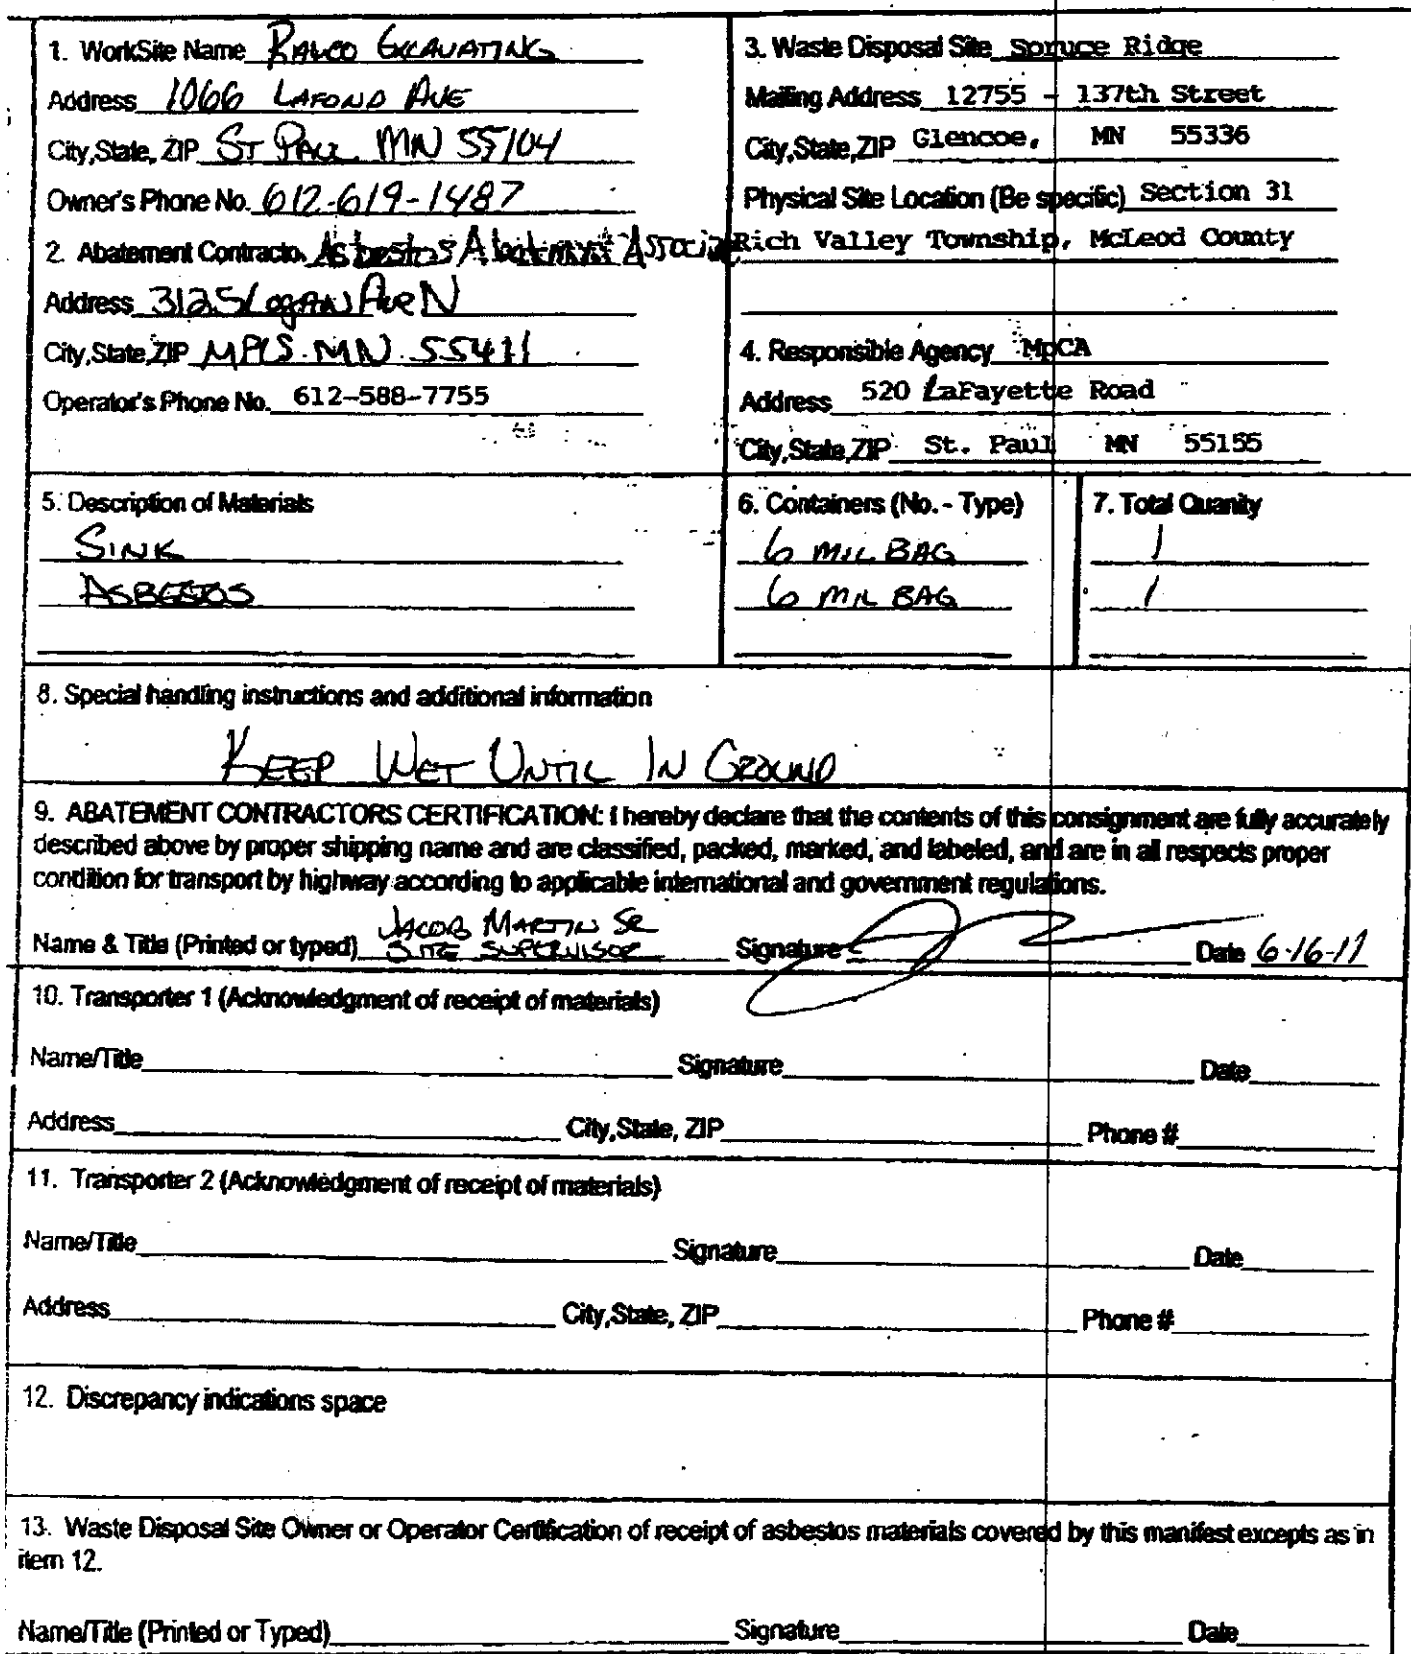 1. WorkSite Name Ramco Excavating
Address 1066 Lafond Ave
City,State, ZIP St Paul MN 55104
Owner's Phone No. 612-619-1487
2. Abatement Contracto. Asbestos Abatement Associa
Address 3125 Logan Ave N
City,State,ZIP MPLS. MN. 55411
Operator's Phone No. 612-588-7755
3. Waste Disposal Site Spruce Ridge
Mailing Address 12755 - 137th Street
City,State,ZIP Glencoe, MN 55336
Physical Site Location (Be specific) Section 31
Rich Valley Township, McLeod County
4. Responsible Agency MpCA
Address 520 LaFayette Road
City,State,ZIP St. Paul MN 55155
5. Description of Materials
SINK
ASBESTOS
6. Containers (No. - Type)
6 MIL BAG
6 MIL BAG
7. Total Quanity
1
1
8. Special handling instructions and additional information
KEEP WET UNTIL IN GROUND
9. ABATEMENT CONTRACTORS CERTIFICATION: I hereby declare that the contents of this consignment are fully accurately
described above by proper shipping name and are classified, packed, marked, and labeled, and are in all respects proper
condition for transport by highway according to applicable international and government regulations.
JACOB MARTIN SR
Name & Title (Printed or typed) SITE SUPERVISOR Signature Date 6-16-11
10. Transporter 1 (Acknowledgment of receipt of materials)
Name/Title Signature Date
Address City,State, ZIP Phone #
11. Transporter 2 (Acknowledgment of receipt of materials)
Name/Title Signature Date
Address City,State, ZIP Phone #
12. Discrepancy indications space
13. Waste Disposal Site Owner or Operator Certification of receipt of asbestos materials covered by this manifest excepts as in
item 12.
Name/Title (Printed or Typed) Signature Date